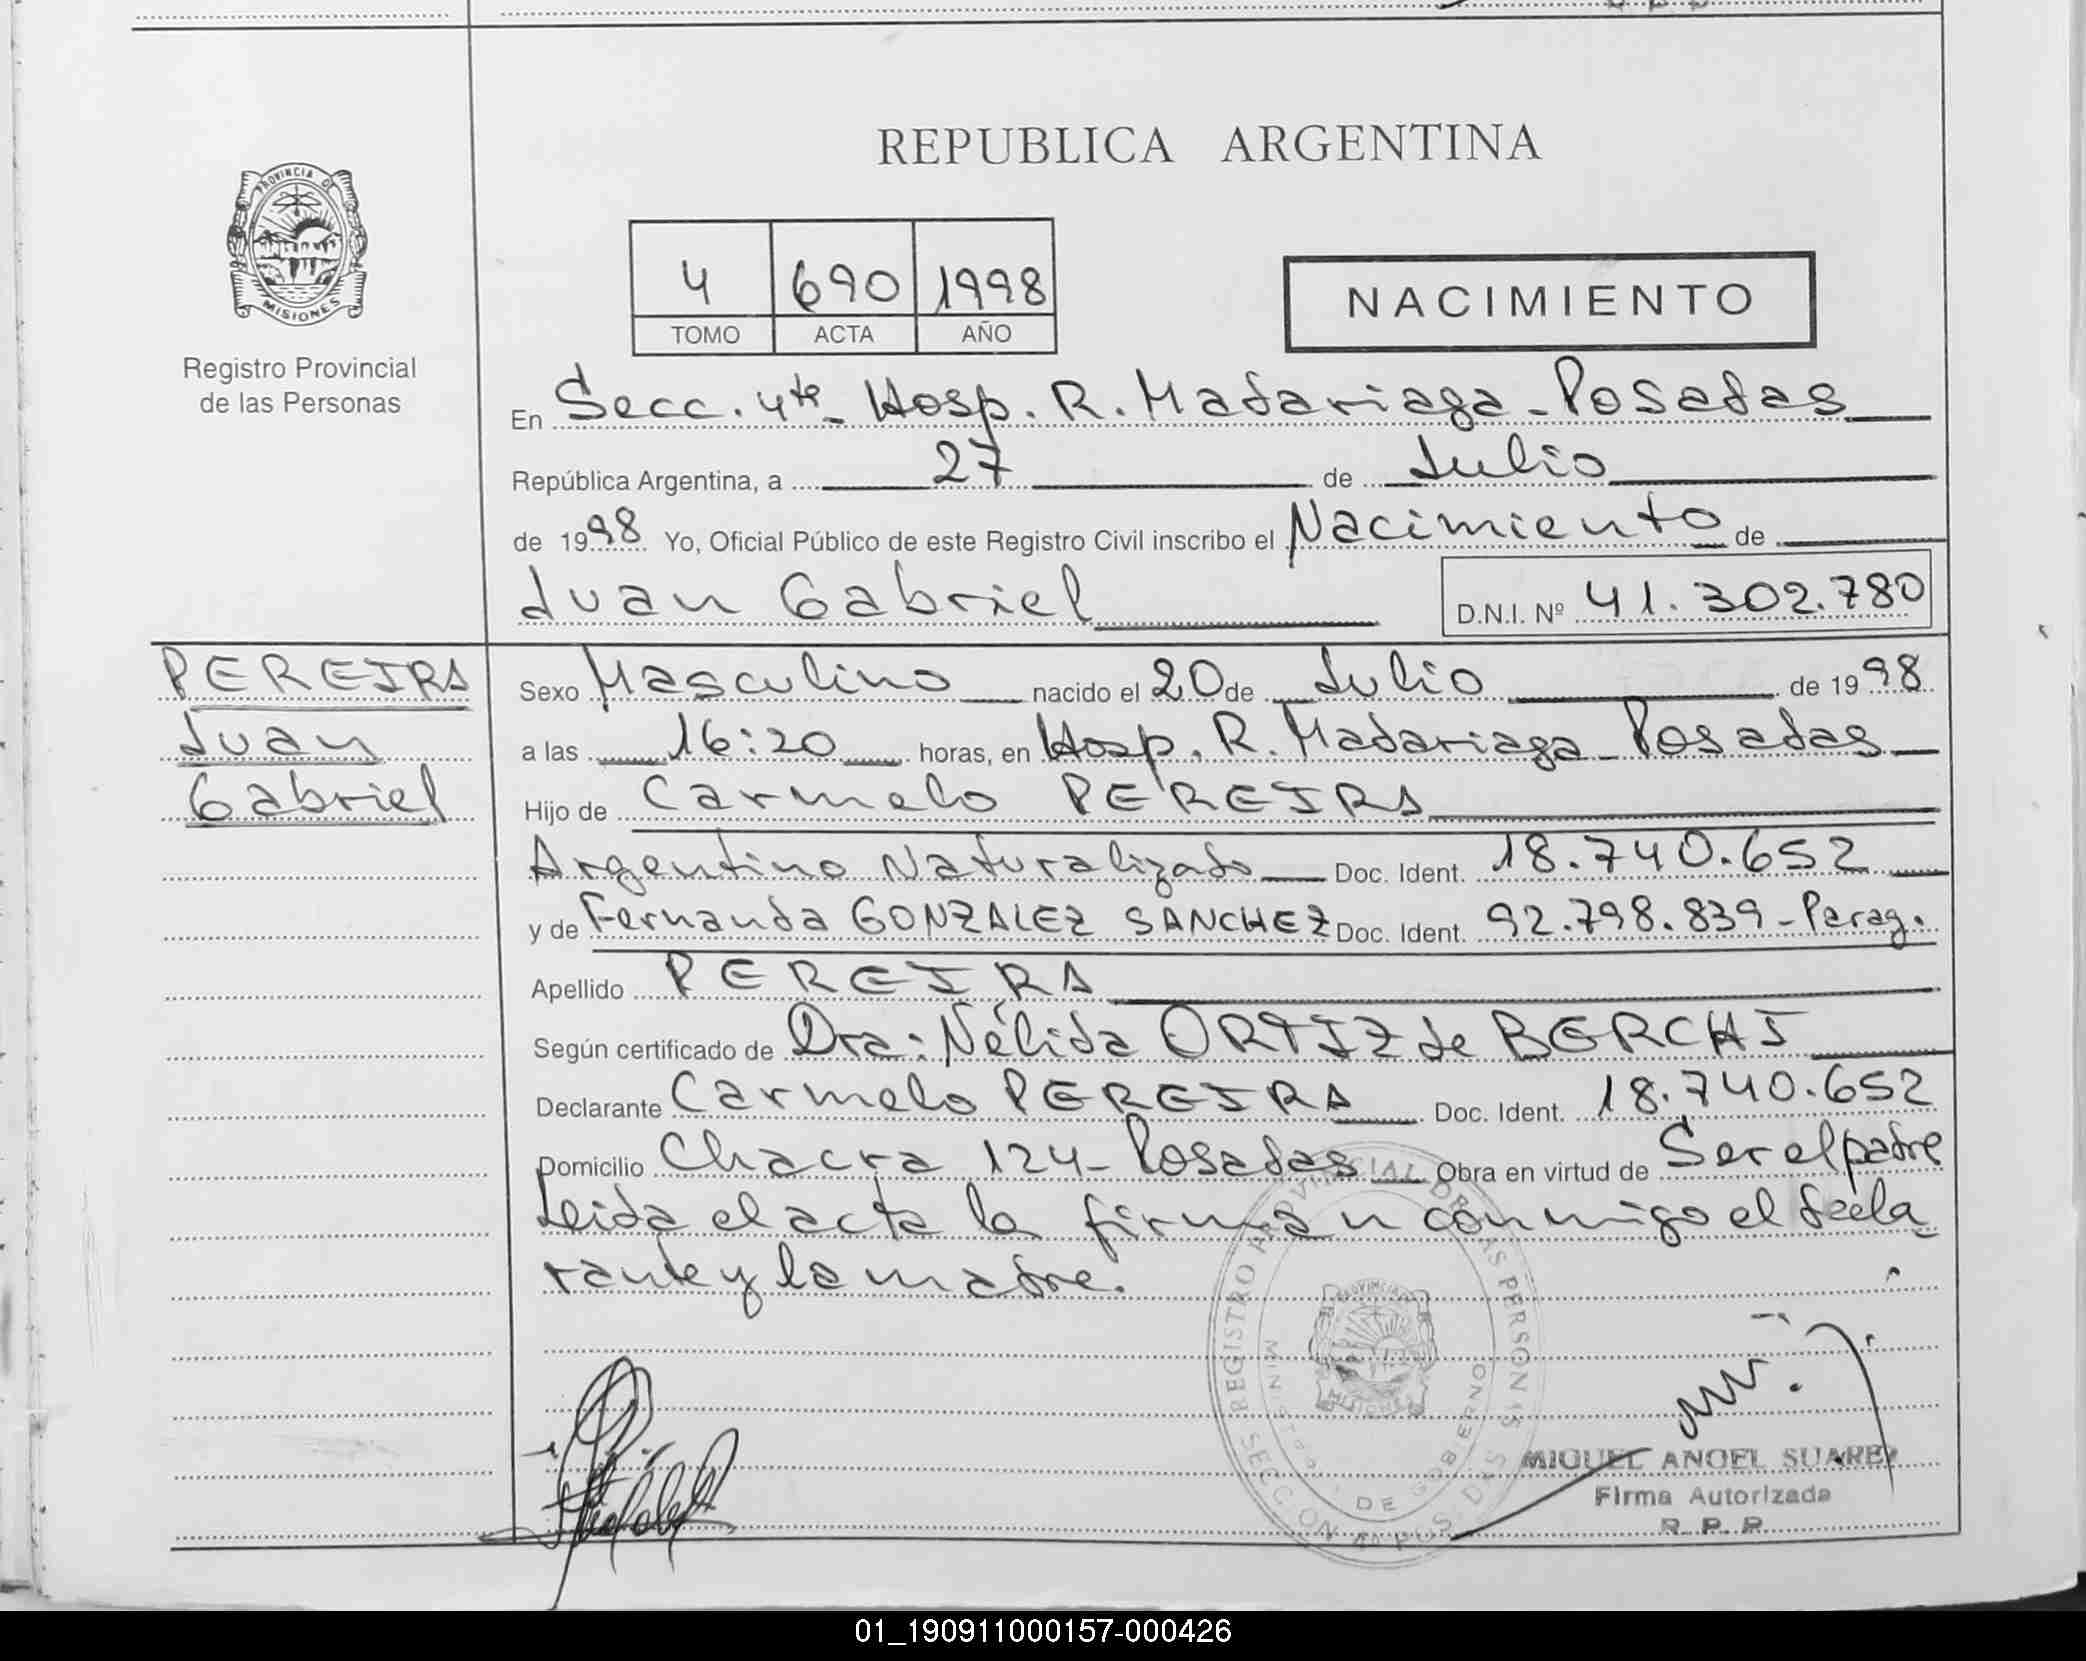 REPUBLICA ARGENTINA
PROVINCIA DE
MISIONES
Registro Provincial
de las Personas
4 690 1998
TOMO ACTA AÑO
NACIMIENTO
En Secc. 4ta_ Hosp. R. Madariaga_Posadas
República Argentina, a 27 de Julio
de 1998 Yo, Oficial Público de este Registro Civil inscribo el Nacimiento de
Juan Gabriel D.N.I. Nº 41.302.780
PEREIRA
Juan
Gabriel
Sexo Masculino nacido el 20 de Julio de 1998
a las 16:20 horas, en Hosp. R. Madariaga_Posadas
Hijo de Carmelo PEREIRA
Argentino Naturalizado Doc. Ident. 18.740.652
y de Fernanda GONZALEZ SANCHEZ Doc. Ident. 92.798.839-Parag.
Apellido PEREIRA
Según certificado de Dra: Nélida ORTIZ de BERCHI
Declarante Carmelo PEREIRA Doc. Ident. 18.740.652
Domicilio Chacra 124_Posadas Obra en virtud de Ser el padre
Leida el acta la firman conmigo el decla_
rante y la madre.
REGISTRO PROVINCIAL DE LAS PERSONAS
MINISTRO DE GOBIERNO
MISIONES
SECCION 4ª POSADAS
MIGUEL ANGEL SUAREZ
Firma Autorizada
R. P. P.
01_190911000157-000426